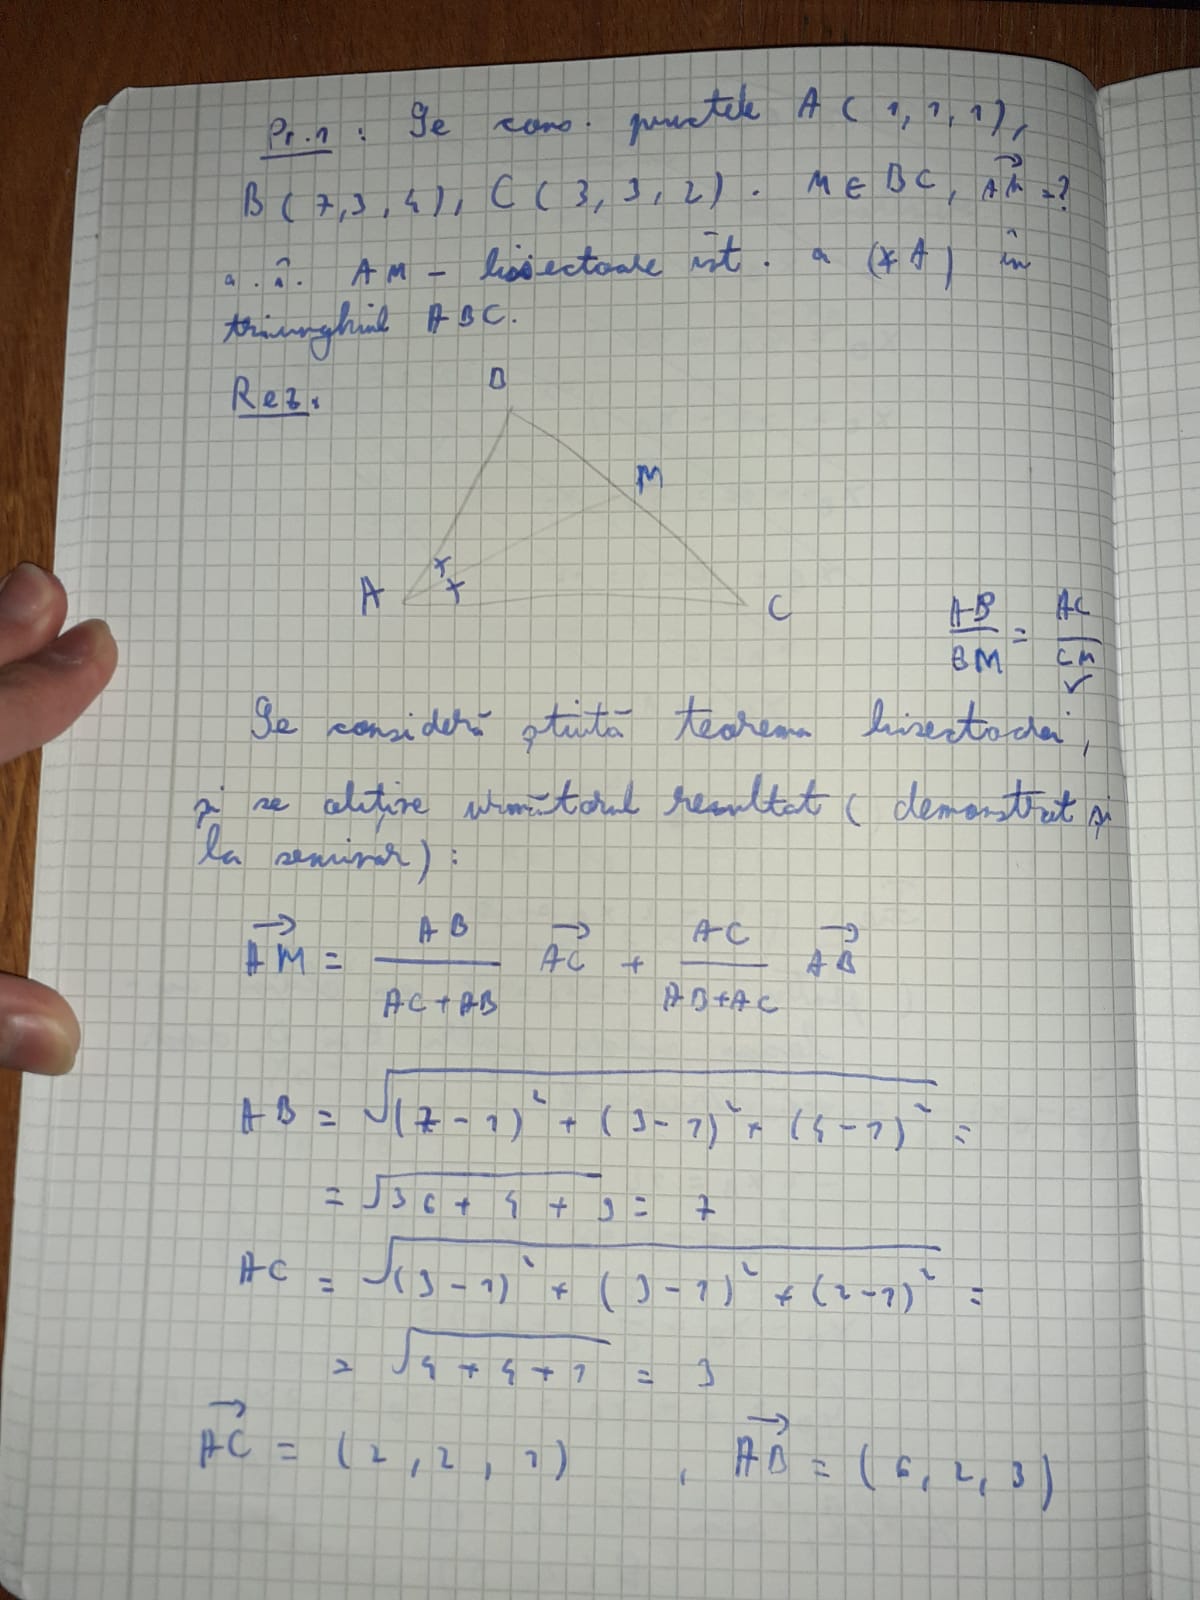 Pr.1 : Se cons. punctele A ( 1, 1, 1),
B ( 7, 3, 4), C ( 3, 3, 2) . M ∈ BC, \overrightarrow{AM} = ?
a. î. AM - bisectoare int. a (∢ A) în
triunghiul ABC.
Rez.
B
M
A
C
\frac{AB}{BM} = \frac{AC}{CM}
Se consideră știută teorema bisectoarei,
și se obține următorul rezultat ( demonstrat și
la seminar) :
\overrightarrow{AM} = \frac{AB}{AC + AB} \overrightarrow{AC} + \frac{AC}{AB + AC} \overrightarrow{AB}
AB = \sqrt{(7 - 1)^2 + (3 - 1)^2 + (4 - 1)^2} =
= \sqrt{36 + 4 + 9} = 7
AC = \sqrt{(3 - 1)^2 + (3 - 1)^2 + (2 - 1)^2} =
= \sqrt{4 + 4 + 1} = 3
\overrightarrow{AC} = ( 2, 2, 1) , \overrightarrow{AB} = ( 6, 2, 3)